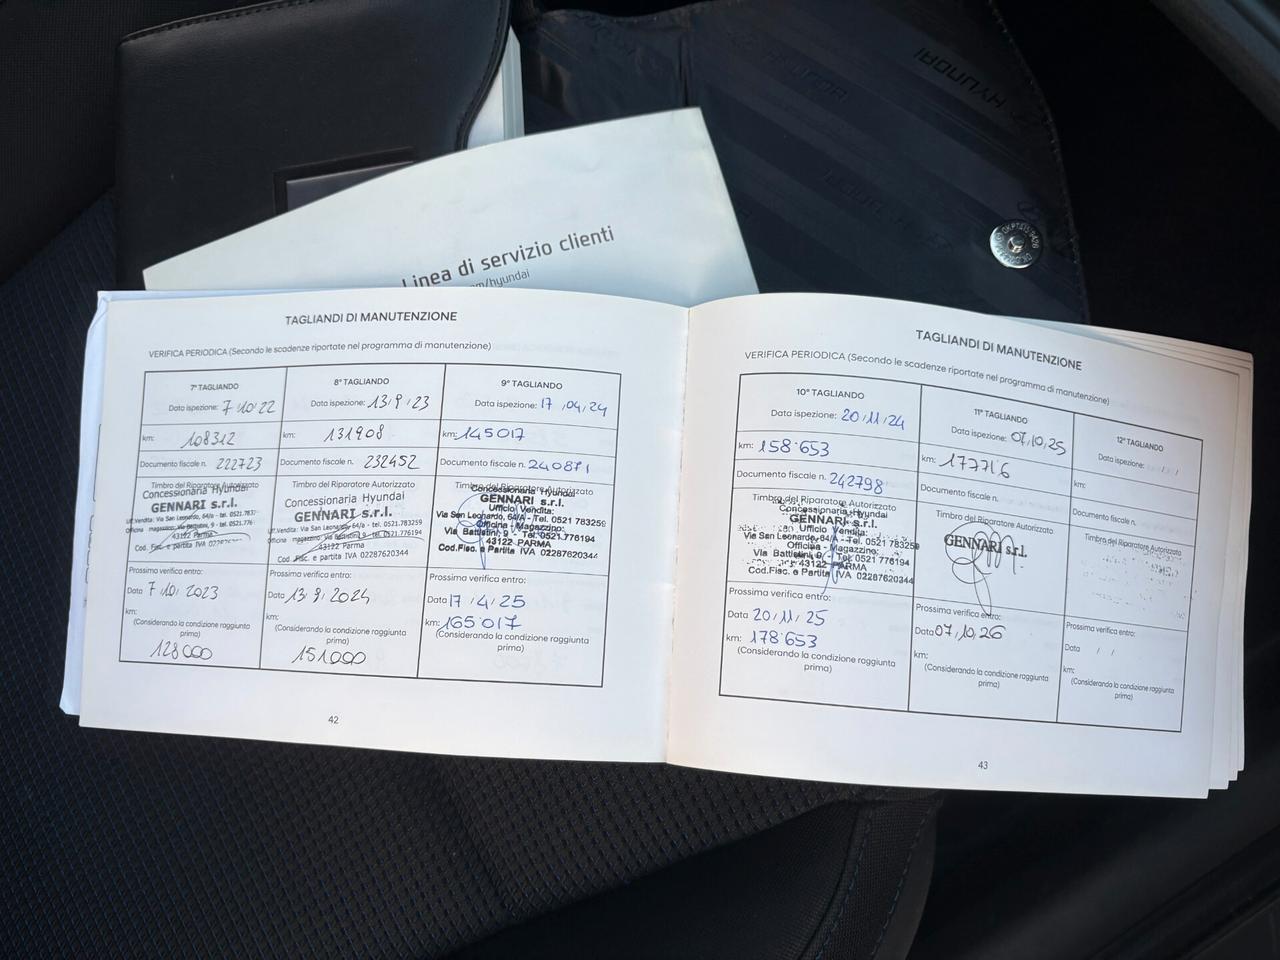 HYUNDAI
Linea di servizio clienti
m/hyundai
TAGLIANDI DI MANUTENZIONE
VERIFICA PERIODICA (Secondo le scadenze riportate nel programma di manutenzione)
7° TAGLIANDO
Data ispezione: 7/10/22
km: 108312
Documento fiscale n. 222723
Timbro del Riparatore Autorizzato
Concessionaria Hyundai
GENNARI s.r.l.
43122 Parma
Prossima verifica entro:
Data 7/10/2023
km:
(Considerando la condizione raggiunta
prima)
128000
8° TAGLIANDO
Data ispezione: 13/9/23
km: 131908
Documento fiscale n. 232452
Timbro del Riparatore Autorizzato
Concessionaria Hyundai
GENNARI s.r.l.
Uff.Vendita: Via San Leonardo, 64/a - tel. 0521.783259
Officina magazzino: Via Battistini, 9 - tel. 0521.776194
43122 Parma
Cod. Fisc. e partita IVA 02287620344
Prossima verifica entro:
Data 13/9/2024
km:
(Considerando la condizione raggiunta
prima)
151000
9° TAGLIANDO
Data ispezione: 17/04/24
km: 145017
Documento fiscale n. 240871
Timbro del Riparatore Autorizzato
Concessionaria Hyundai
GENNARI s.r.l.
Ufficio Vendita:
Via San Leonardo, 64/A - Tel. 0521 783259
Officina - Magazzino:
Via Battistini, 9 - Tel. 0521.776194
43122 PARMA
Cod.Fisc. e Partita IVA 02287620344
Prossima verifica entro:
Data 17/4/25
km: 165017
(Considerando la condizione raggiunta
prima)
42
TAGLIANDI DI MANUTENZIONE
VERIFICA PERIODICA (Secondo le scadenze riportate nel programma di manutenzione)
10° TAGLIANDO
Data ispezione: 20/11/24
km: 158'653
Documento fiscale n. 242798
Timbro del Riparatore Autorizzato
Concessionaria Hyundai
GENNARI s.r.l.
Ufficio Vendita:
Via San Leonardo, 64/A - Tel. 0521 783259
Officina - Magazzino:
Via Battistini, 9 - Tel. 0521 776194
43122 PARMA
Cod.Fisc. e Partita IVA 02287620344
Prossima verifica entro:
Data 20/11/25
km: 178'653
(Considerando la condizione raggiunta
prima)
11° TAGLIANDO
Data ispezione: 07/10/25
km: 177716
Documento fiscale n.
Timbro del Riparatore Autorizzato
GENNARI s.r.l.
Prossima verifica entro:
Data 07/10/26
km:
(Considerando la condizione raggiunta
prima)
12° TAGLIANDO
Data ispezione: / /
km:
Documento fiscale n.
Timbro del Riparatore Autorizzato
Prossima verifica entro:
Data / /
km:
(Considerando la condizione raggiunta
prima)
43